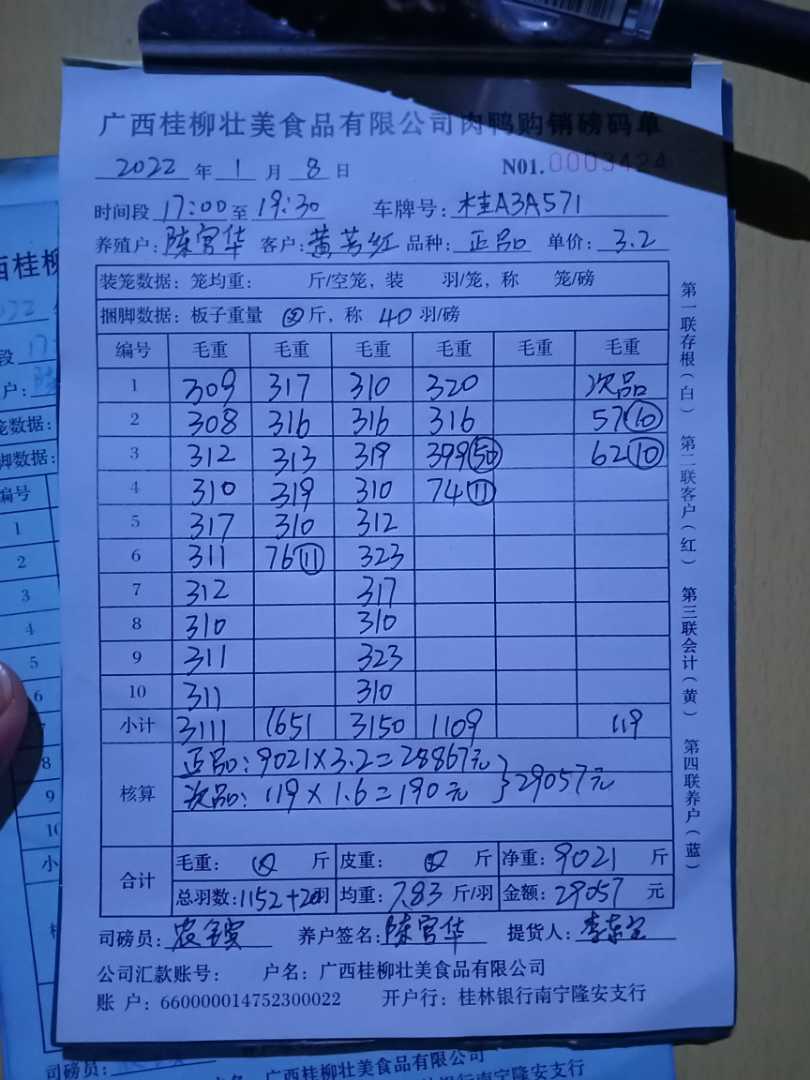 广西桂柳壮美食品有限公司肉鸭购销磅码单
2022 年 1 月 8 日 N01.0003424
时间段 17:00 至 19:30 车牌号: 桂A3A571
养殖户: 陈官华 客户: 黄芳红 品种: 正品 单价: 3.2
装笼数据: 笼均重: 斤/空笼, 装 羽/笼, 称 笼/磅
捆脚数据: 板子重量 斤, 称 40 羽/磅
编号 毛重 毛重 毛重 毛重 毛重 毛重
1 309 317 310 320 次品
2 308 316 316 316 57⑩
3 312 313 319 399㊿ 62⑩
4 310 319 310 74⑪
5 317 310 312
6 311 76⑪ 323
7 312 317
8 310 310
9 311 323
10 311 310
小计 3111 1651 3150 1109 119
核算 正品: 9021×3.2=28867元
次品: 119×1.6=190元 }29057元
合计 毛重: 斤 皮重: 斤 净重: 9021 斤
总羽数: 1152+20羽 均重: 7.83 斤/羽 金额: 29057 元
司磅员: 养户签名: 陈官华 提货人:
公司汇款账号: 户名: 广西桂柳壮美食品有限公司
账 户: 660000014752300022 开户行: 桂林银行南宁隆安支行
第一联存根(白) 第二联客户(红) 第三联会计(黄) 第四联养户(蓝)